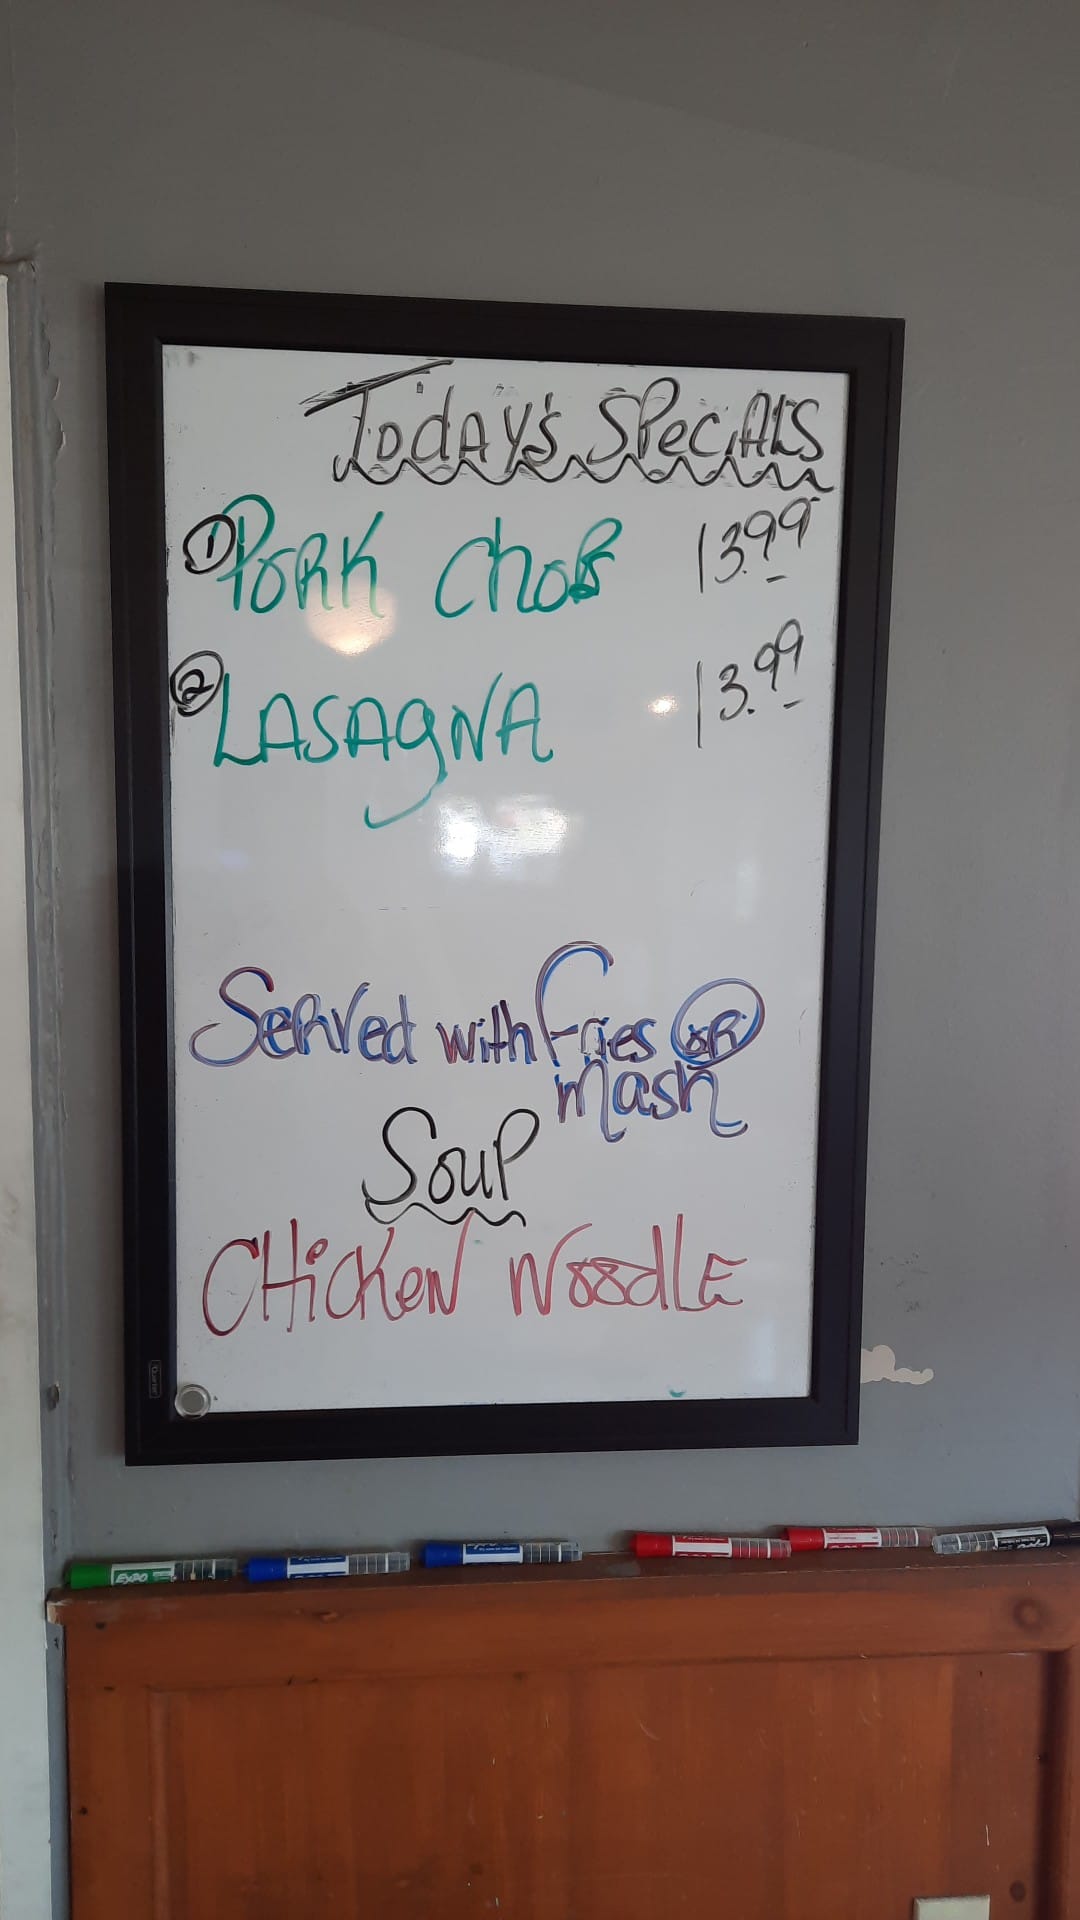 Today's Specials
1 Pork Chops 13.99
2 Lasagna 13.99
Served with Fries or
mash
Soup
Chicken Noodle
Quartet
EXPO